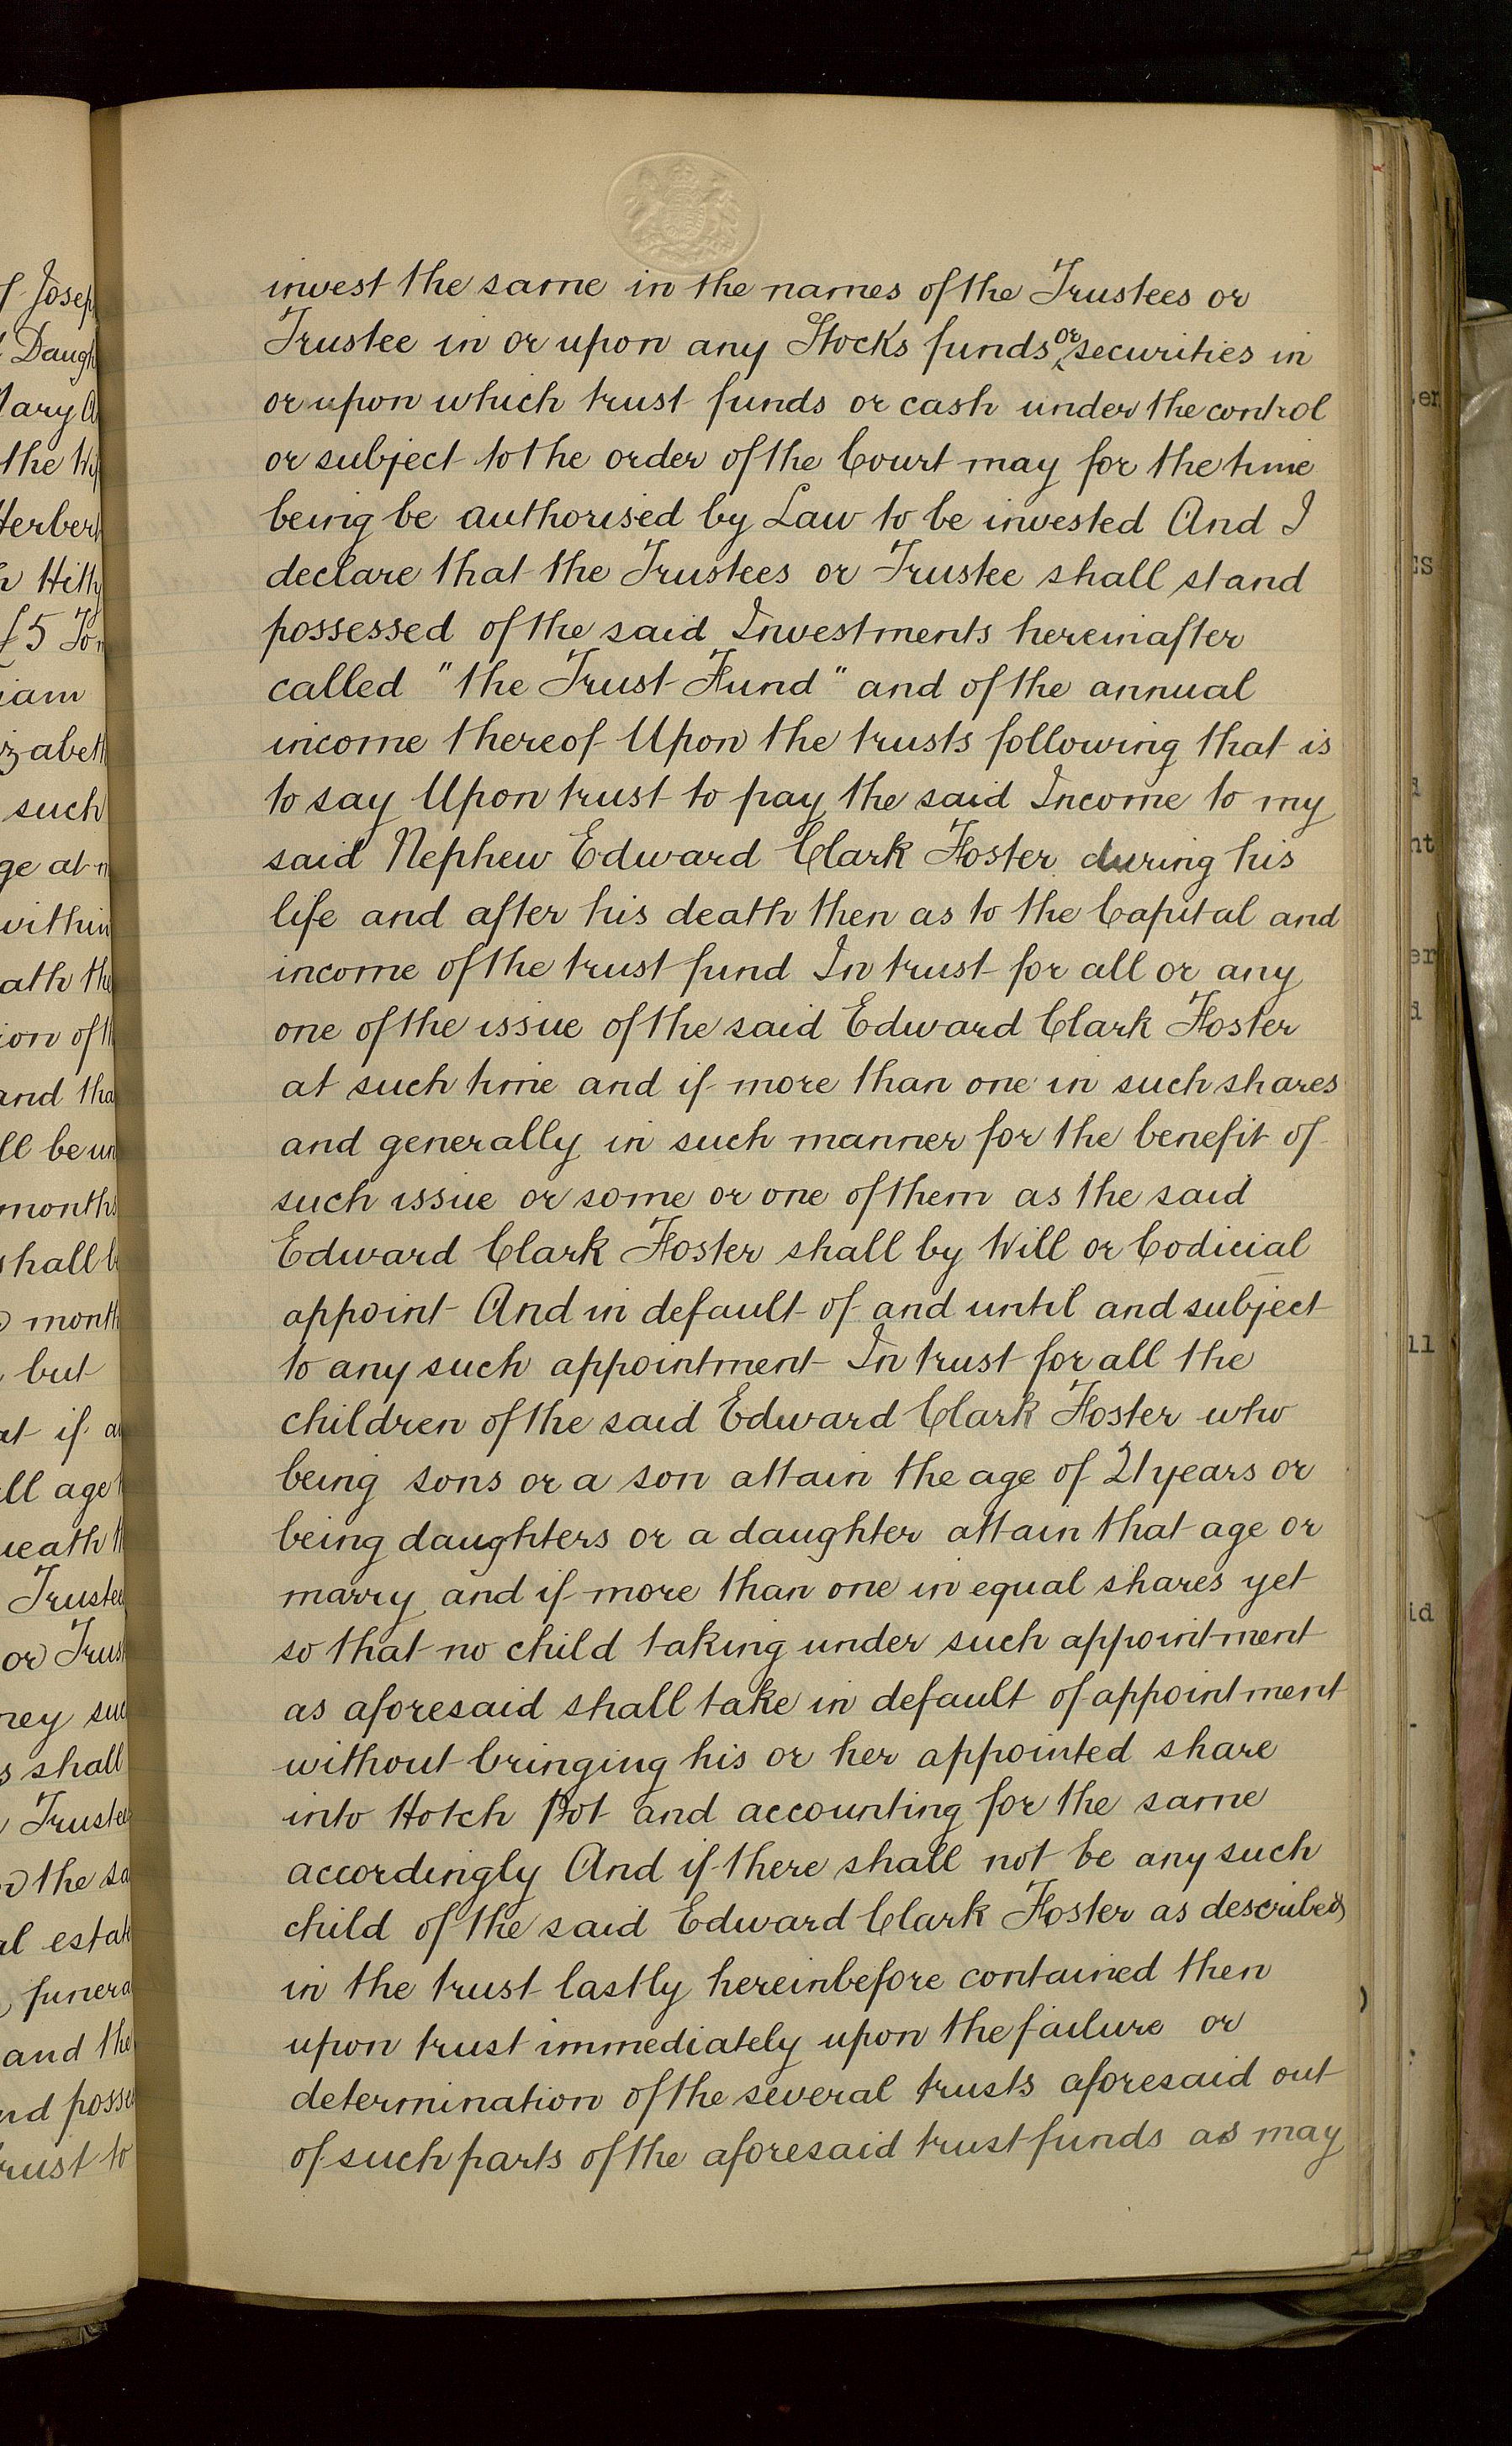 invest the same in the names of the Trustees or
Trustee in or upon any Stocks funds or securities in
or upon which trust funds or cash under the control
or subject to the order of the Court may for the time
being be authorised by Law to be invested And I
declare that the Trustees or Trustee shall stand
possessed of the said Investments hereinafter
called "the Trust Fund" and of the annual
income thereof Upon the trusts following that is
to say Upon trust to pay the said Income to my
said Nephew Edward Clark Foster during his
life and after his death then as to the Capital and
income of the trust fund In trust for all or any
one of the issue of the said Edward Clark Foster
at such time and if more than one in such shares
and generally in such manner for the benefit of
such issue or some or one of them as the said
Edward Clark Foster shall by Will or Codicial
appoint And in default of and until and subject
to any such appointment In trust for all the
children of the said Edward Clark Foster who
being sons or a son attain the age of 21 years or
being daughters or a daughter attain that age or
marry and if more than one in equal shares yet
so that no child taking under such appointment
as aforesaid shall take in default of appointment
without bringing his or her appointed share
into Hotch Pot and accounting for the same
accordingly And if there shall not be any such
child of the said Edward Clark Foster as described
in the trust lastly hereinbefore contained then
upon trust immediately upon the failure or
determination of the several trusts aforesaid out
of such parts of the aforesaid trust funds as may